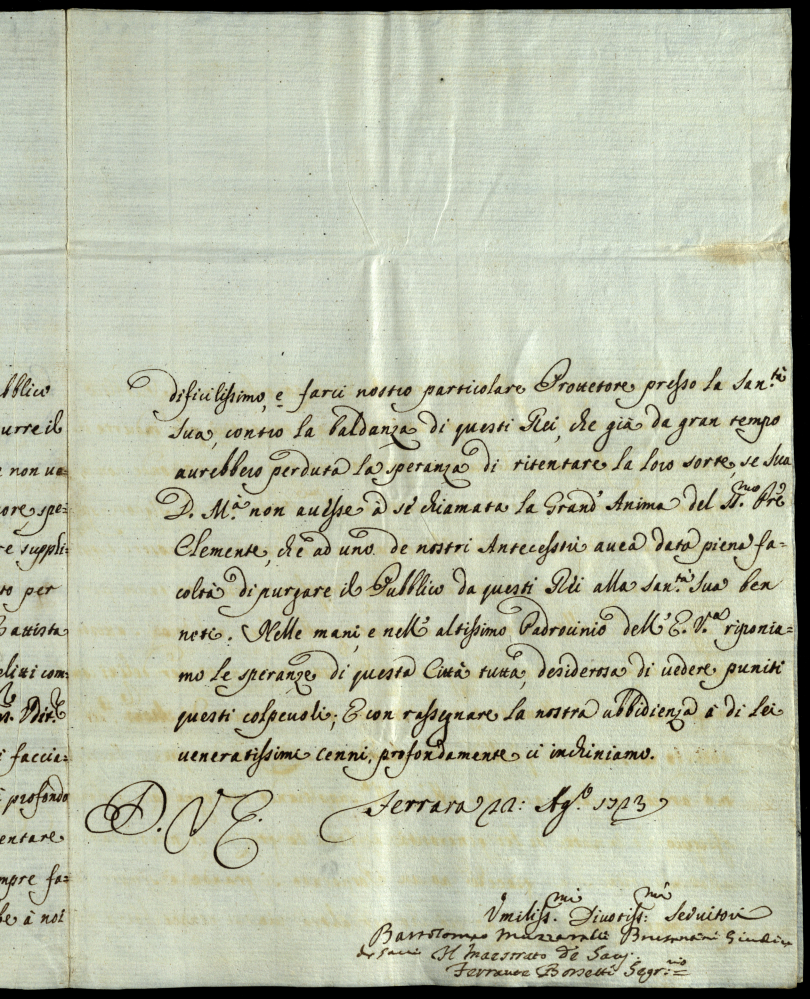 bblico
urre il
e non uo=
ore spe=
re suppli=
to per
Battista
elitti com=
i faccia=
i profondo
entare
mpre fa=
be à noi
dificilissimo, e farci nostro particolare Protettore presso la San.tà
Sua, contro la baldanza di questi Rei, che già da gran tempo
aurebbero perduta la speranza di ritentare la loro sorte, se Sua
D. M.à non auesse à sè chiamata la Grand' Anima del S.mo Prē
Clemente, che ad uno de nostri Antecessori auea dato piena fa=
coltà di purgare il Pubblico da questi Rei alla San.tà Sua ben
noti. Nelle mani, e nell' altissimo Padrocinio dell' E. V.a riponia=
mo le speranze di questa Città tutta, desiderosa di uedere puniti
questi colpeuoli; E con rassegnare la nostra ubbidienza à di Lei
ueneratissimi cenni, profondamente ci inchiniamo.
D. V. E. Ferrara 22: Ag.o 1723
Vmiliss.mi Diuotiss:mi Seruitori
Bartolomeo Giudice
de Sauj Il Maestrato de Sauj
Borsetti Segr.rio